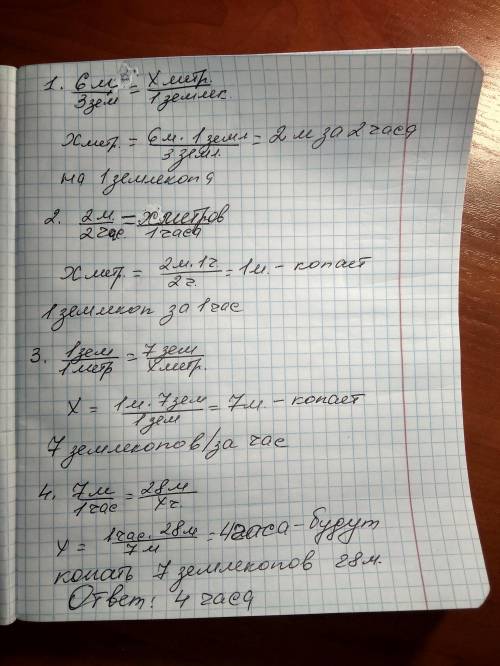 1. 6м/3зем = Хметр./1землек.
Хметр. = 6м. 1земл/3земл. = 2 м за 2 часа
на 1 землекопа
2. 2м./2час. = Хметров/1часа
Хметр. = 2м. 1ч/2ч. = 1м. - копает
1 землекоп за 1 час
3. 1зем/1метр = 7зем/Хметр.
Х = 1м. 7зем/1зем = 7м. - копает
7 землекопов/за час
4. 7м/1час = 28м/Хч.
Х = 1час. 28м/7м = 4часа - будут
копать 7 землекопов 28м.
Ответ: 4 часа